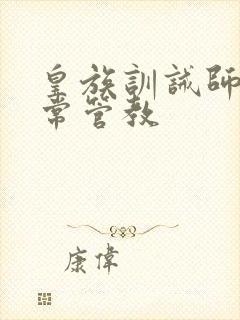 皇族訓誡師
常管教
康偉